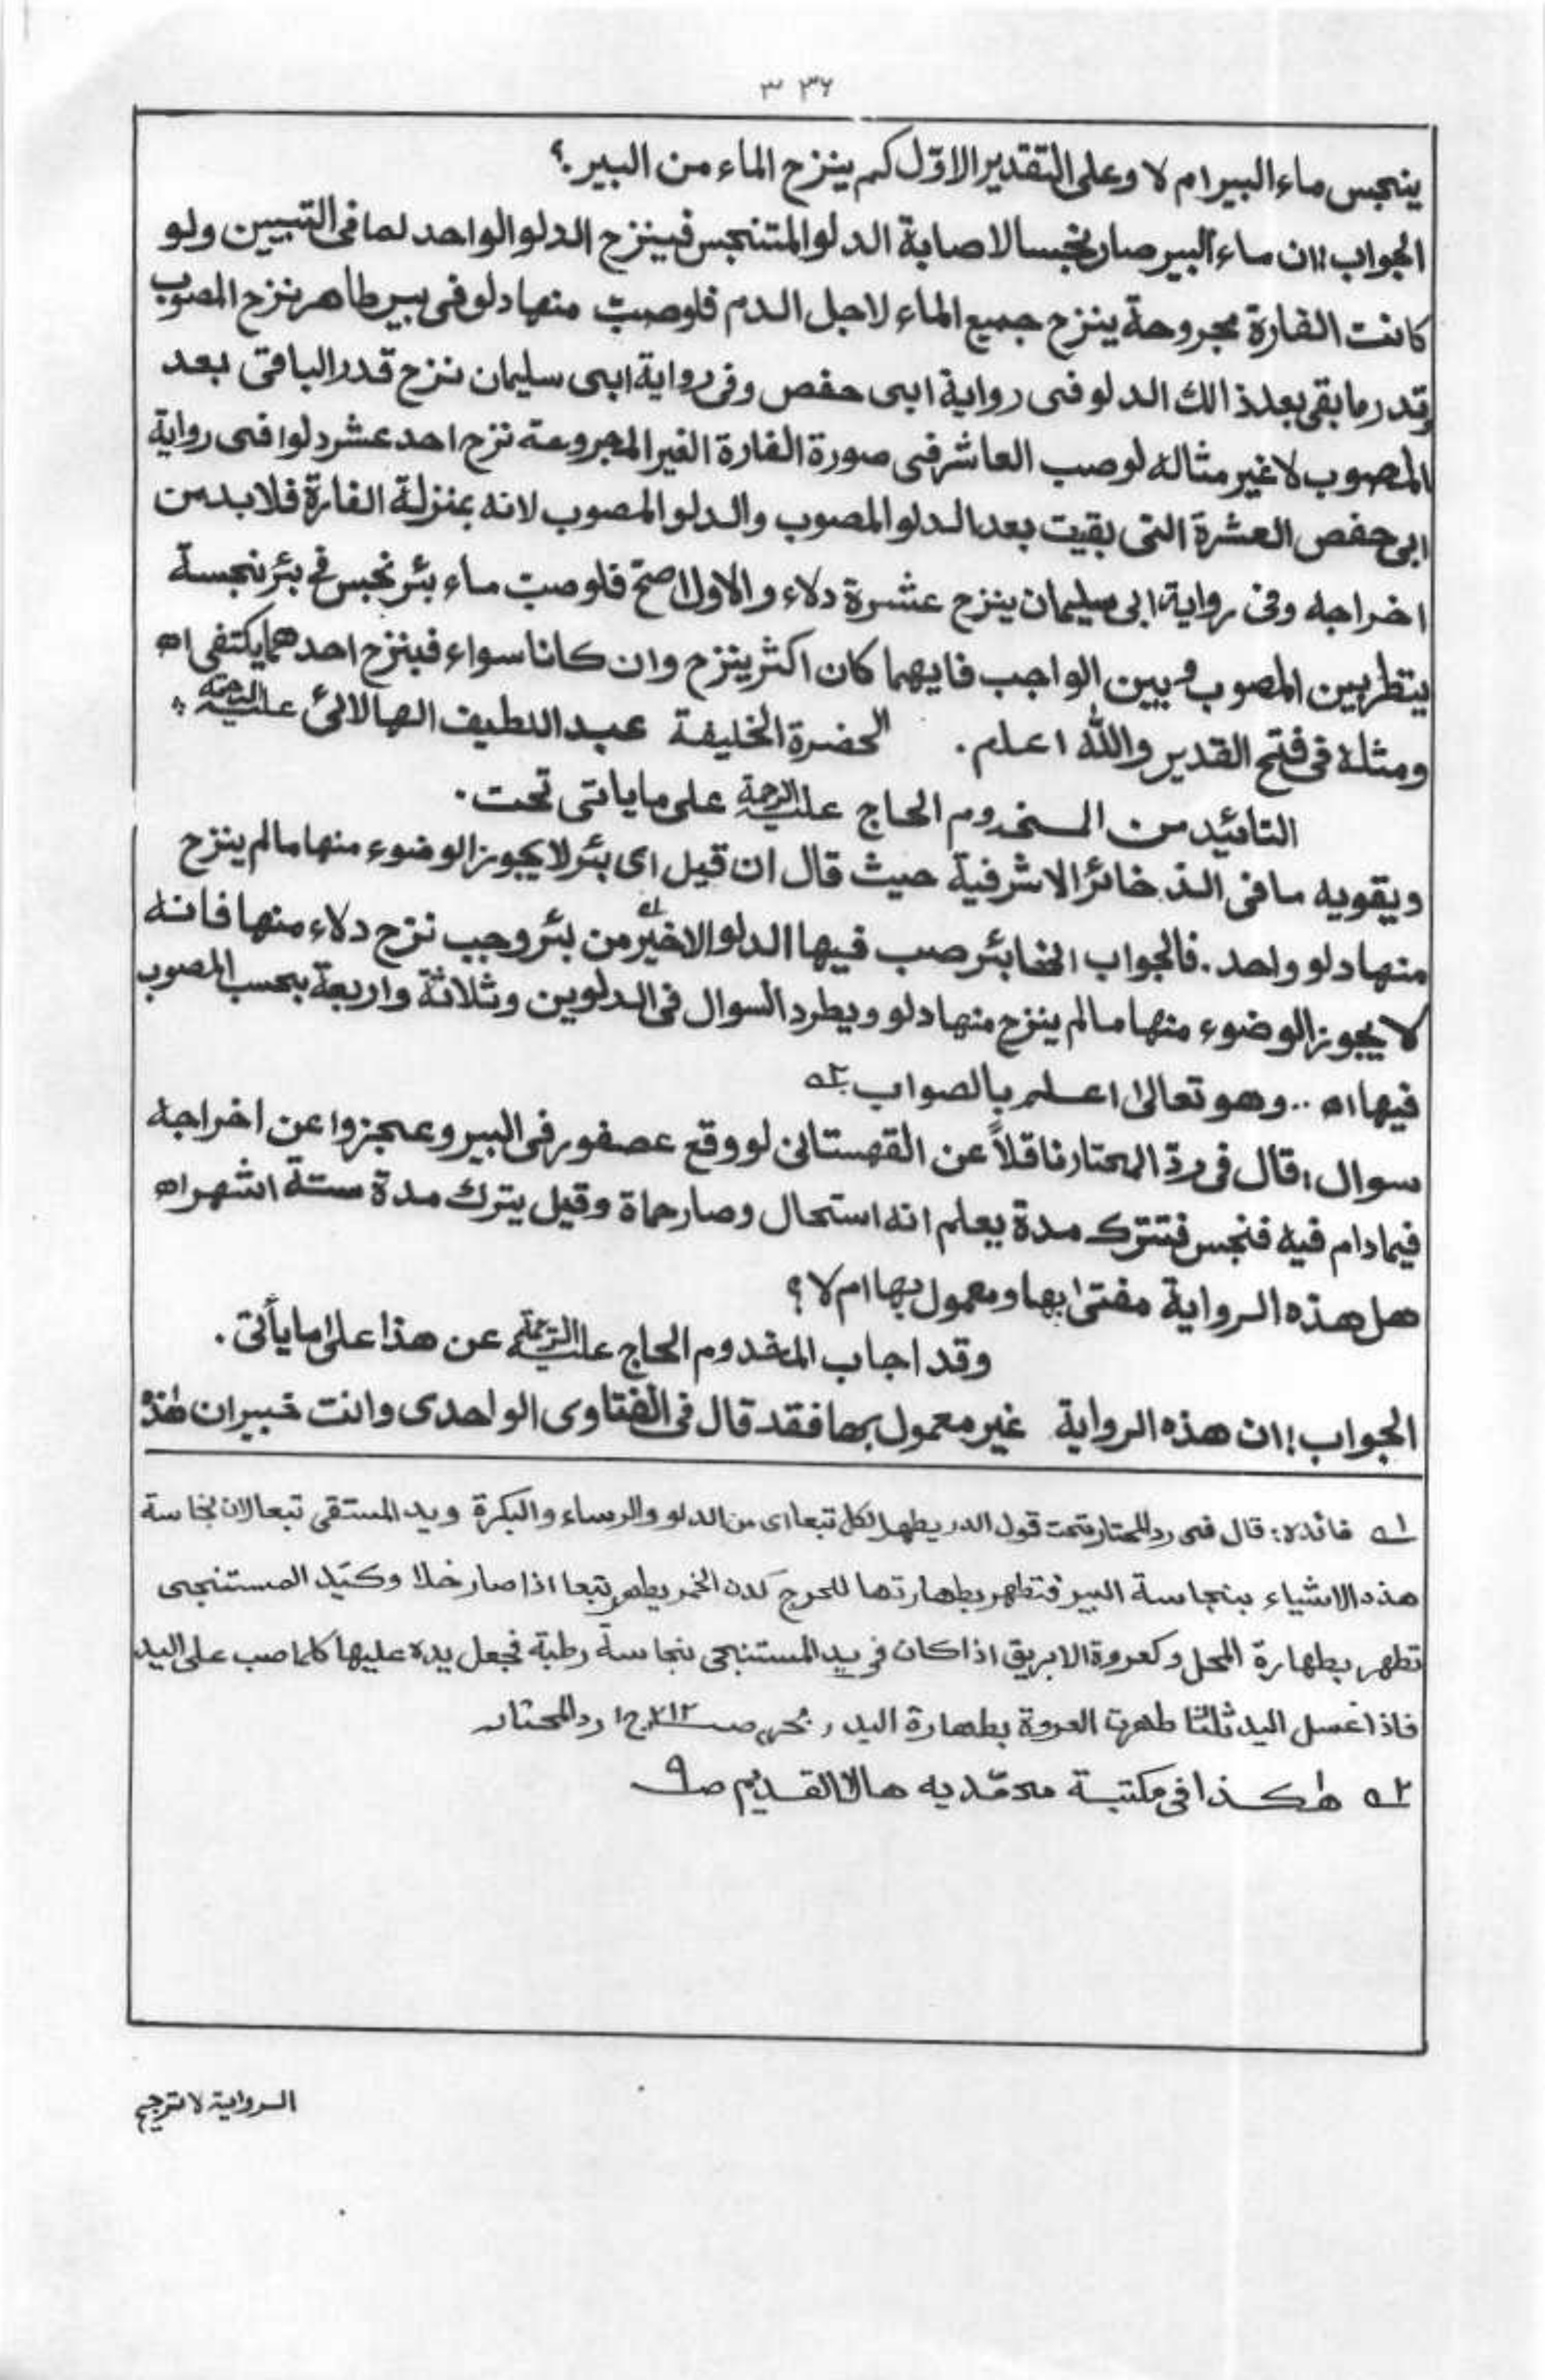 ٣٣٦
ينجس ماء البير ام لا وعلى التقدير الاوّل كم ينزح الماء من البير؟
الجواب! ان ماء البير صار نجسا لاصابة الدلو المتنجس فينزح الدلو الواحد لما فى التبيين ولو
كانت الفارة مجروحة ينزح جميع الماء لاجل الدم فلو صبّ منها دلو فى بير طاهر ينزح المصوب
وقدر ما بقى بعد ذالك الدلو فى رواية ابى حفص وفى رواية ابى سليمان ننزح قدر الباقى بعد
المصوب لا غير مثاله لو صب العاشر فى صورة الفارة الغير المجروحة نزح احد عشر دلوا فى رواية
ابى حفص العشرة التى بقيت بعد الدلو المصوب والدلو المصوب لانه بمنزلة الفارة فلا بد من
اخراجه وفى رواية ابى سليمان ينزح عشرة دلاء والاول اصحّ فلو صبّ ماء بئر نجس فى بئر نجسة
ينظر بين المصوب و بين الواجب فايهما كان اكثر ينزح وان كانا سواء فينزح احدهما يكتفى اھ
ومثله فى فتح القدير والله اعلم . الحضرة الخليفة عبد اللطيف الهالائى عليه الرحمة
التائيد من المخدوم الحاج عليه الرحمة على ما ياتى تحت .
ويقويه ما فى الذخائر الاشرفية حيث قال ان قيل اى بئر لا يجوز الوضوء منها ما لم ينزح
منها دلو واحد . فالجواب انها بئر صب فيها الدلو الاخير ١ه من بئر وجب نزح دلاء منها فانه
لا يجوز الوضوء منها ما لم ينزح منها دلو ويطرد السوال فى الدلوين وثلاثة واربعة بحسب المصوب
فيها اھ .. وهو تعالىٰ اعلم بالصواب ٢ه
سوال! قال فى ردّ المحتار ناقلاً عن القهستانى لو وقع عصفور فى البير وعجزوا عن اخراجه
فيما دام فيه فنجس فتترك مدة يعلم انه استحال وصار حماة وقيل يترك مدة ستة اشهر اھ
هل هذه الرواية مفتىٰ بها ومعمول بها ام لا؟
وقد اجاب المخدوم الحاج عليه الرحمة عن هذا علىٰ ما يأتى .
الجواب! ان هذه الرواية غير معمول بها فقد قال فى الفتاوى الواحدى وانت خبير ان هٰذه
١ه فائده: قال فى رد المحتار تحت قول الدر يطهر الكل تبعا اى من الدلو والرساء والبكرة ويد المستقى تبعا لان نجاسة
هذه الاشياء بنجاسة البير فتطهر بطهارتها للحرج كدن الخمر يطهر تبعا اذا صار خلا وكتيد المستنجى
تطهر بطهارة المحل وكعروة الابريق اذا كان فى يد المستنجى نجاسة رطبة فجعل يده عليها كلما صب على اليد
فاذا غسل اليد ثلثا طهرت العروة بطهارة اليد ، بحر، صـ٢١٢ ج١ رد المحتار
٢ه هٰكذا فى مكتبة محمّديه هالا القديم صـ٩
الرواية لا ترجيح